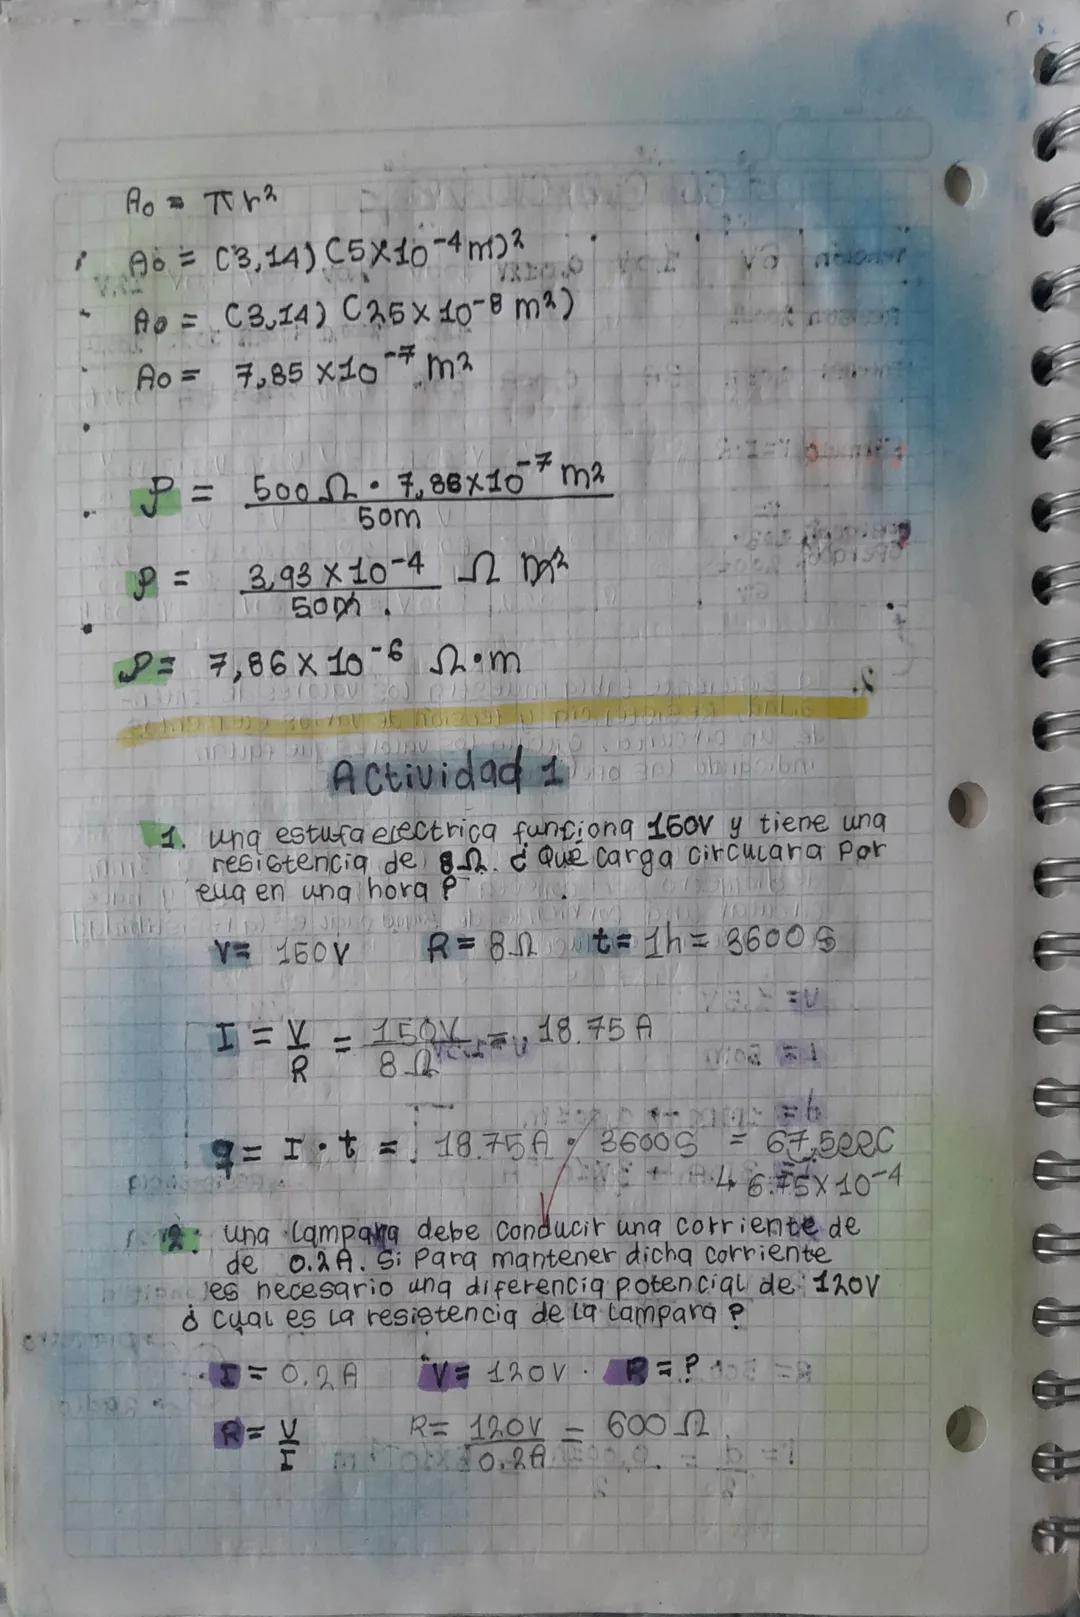 A₀ = πr²
A₀ = (3,14) (5x10⁻⁴m)²
A₀ = (3,14) (25x10⁻⁸ m²)
A₀ = 7,85 x10⁻⁷ m²
ρ = 500 Ω · 7,86x10⁻⁷ m² / 50m
ρ = 3,93 x 10⁻⁴ / 50m Ω m²
ρ = 7,86 x 10⁻⁶ Ω·m
Actividad 1
1. una estufa electrica funciona 150V y tiene una
resistencia de 8Ω. ¿Qué carga circulara por
ella en una hora?
V= 150V R= 8Ω t= 1h = 3600 S
I = V/R = 150V/8Ω = 18.75 A
q= I·t = 18.75A · 3600S =
6.75x10⁻⁴
2. una lampara debe conducir una corriente de
de 0.2A. Si para mantener dicha corriente
es necesario una diferencia potencial de 120V
¿cual es la resistencia de la lampara?
I = 0.2A V= 120V R=?
R= V/I R= 120V/0.2A = 600 Ω